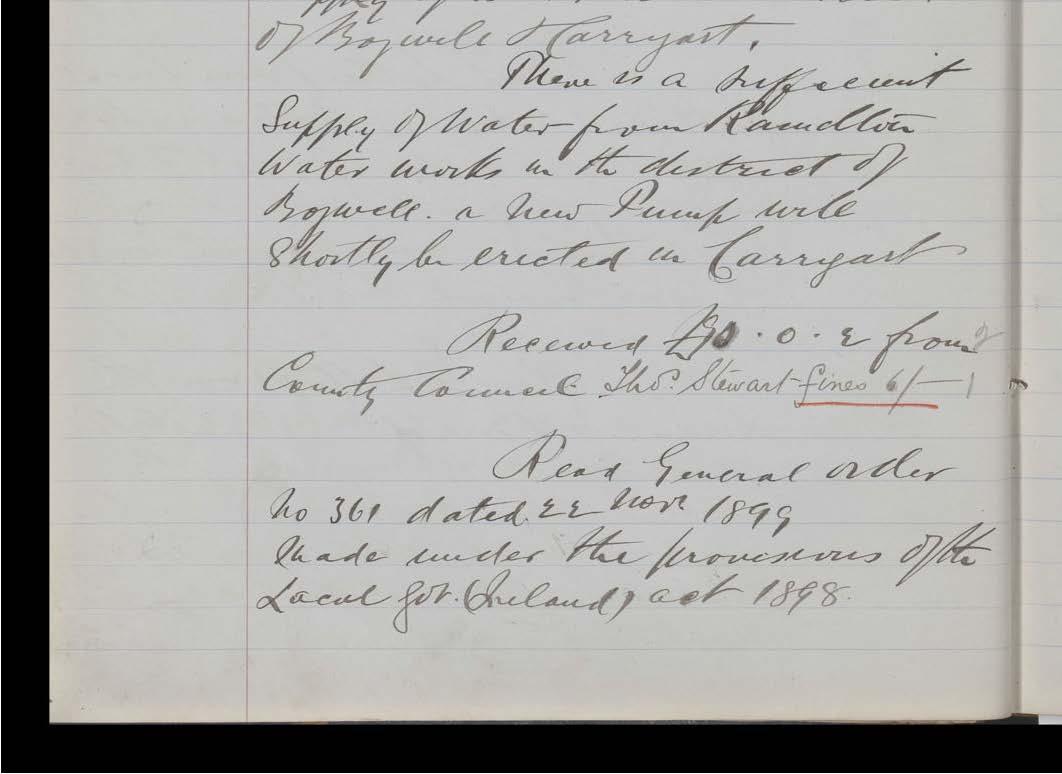 of Bogwell & Carrygart.
There is a suffecient
Supply of Water from
Water works in the district of
Bogwell. a new Pump will
Shortly be erected in Carrygart
Received . 0 . 2 from
County Council Thos. Stewart fines 6/—
Read General order
No 361 dated 22 Novr 1899
Made under the provisions of the
Local Govt. (Ireland) act 1898.